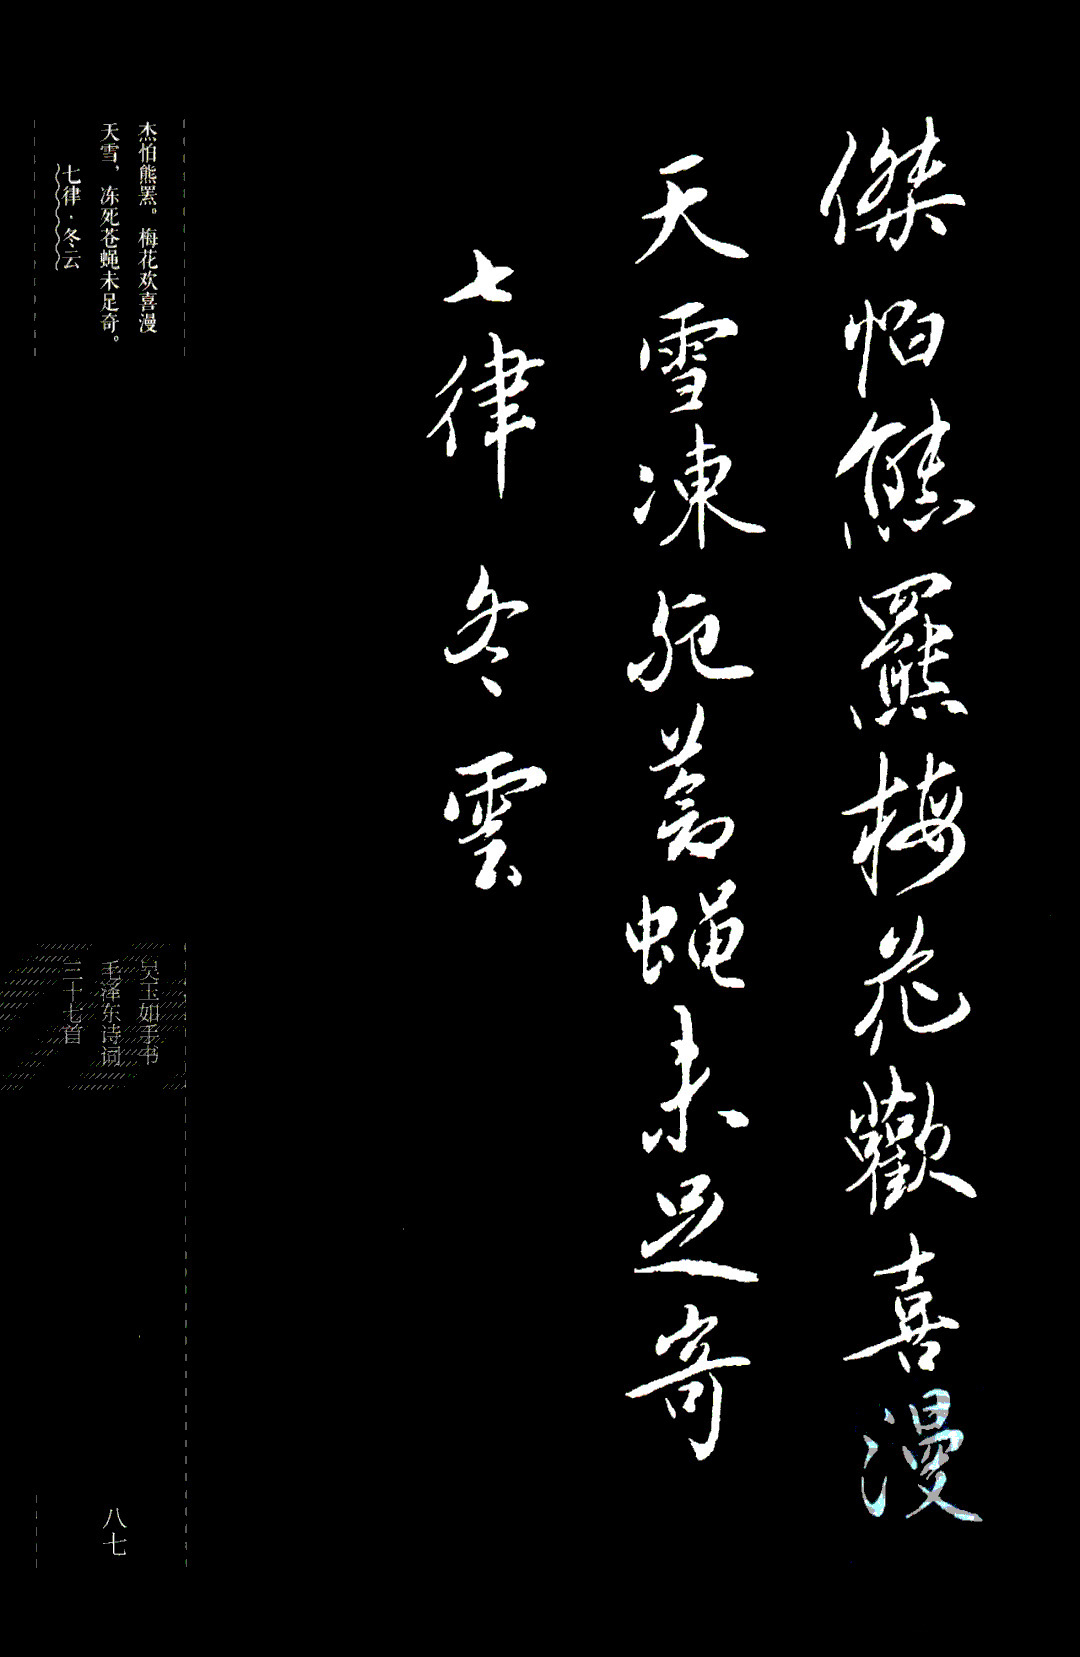 傑怕熊羆梅花歡喜漫
天雪凍死蒼蝇未足奇
七律 冬雲
杰怕熊罴。梅花欢喜漫
天雪，冻死苍蝇未足奇。
七律·冬云
吴玉如手书
毛泽东诗词
三十七首
八七